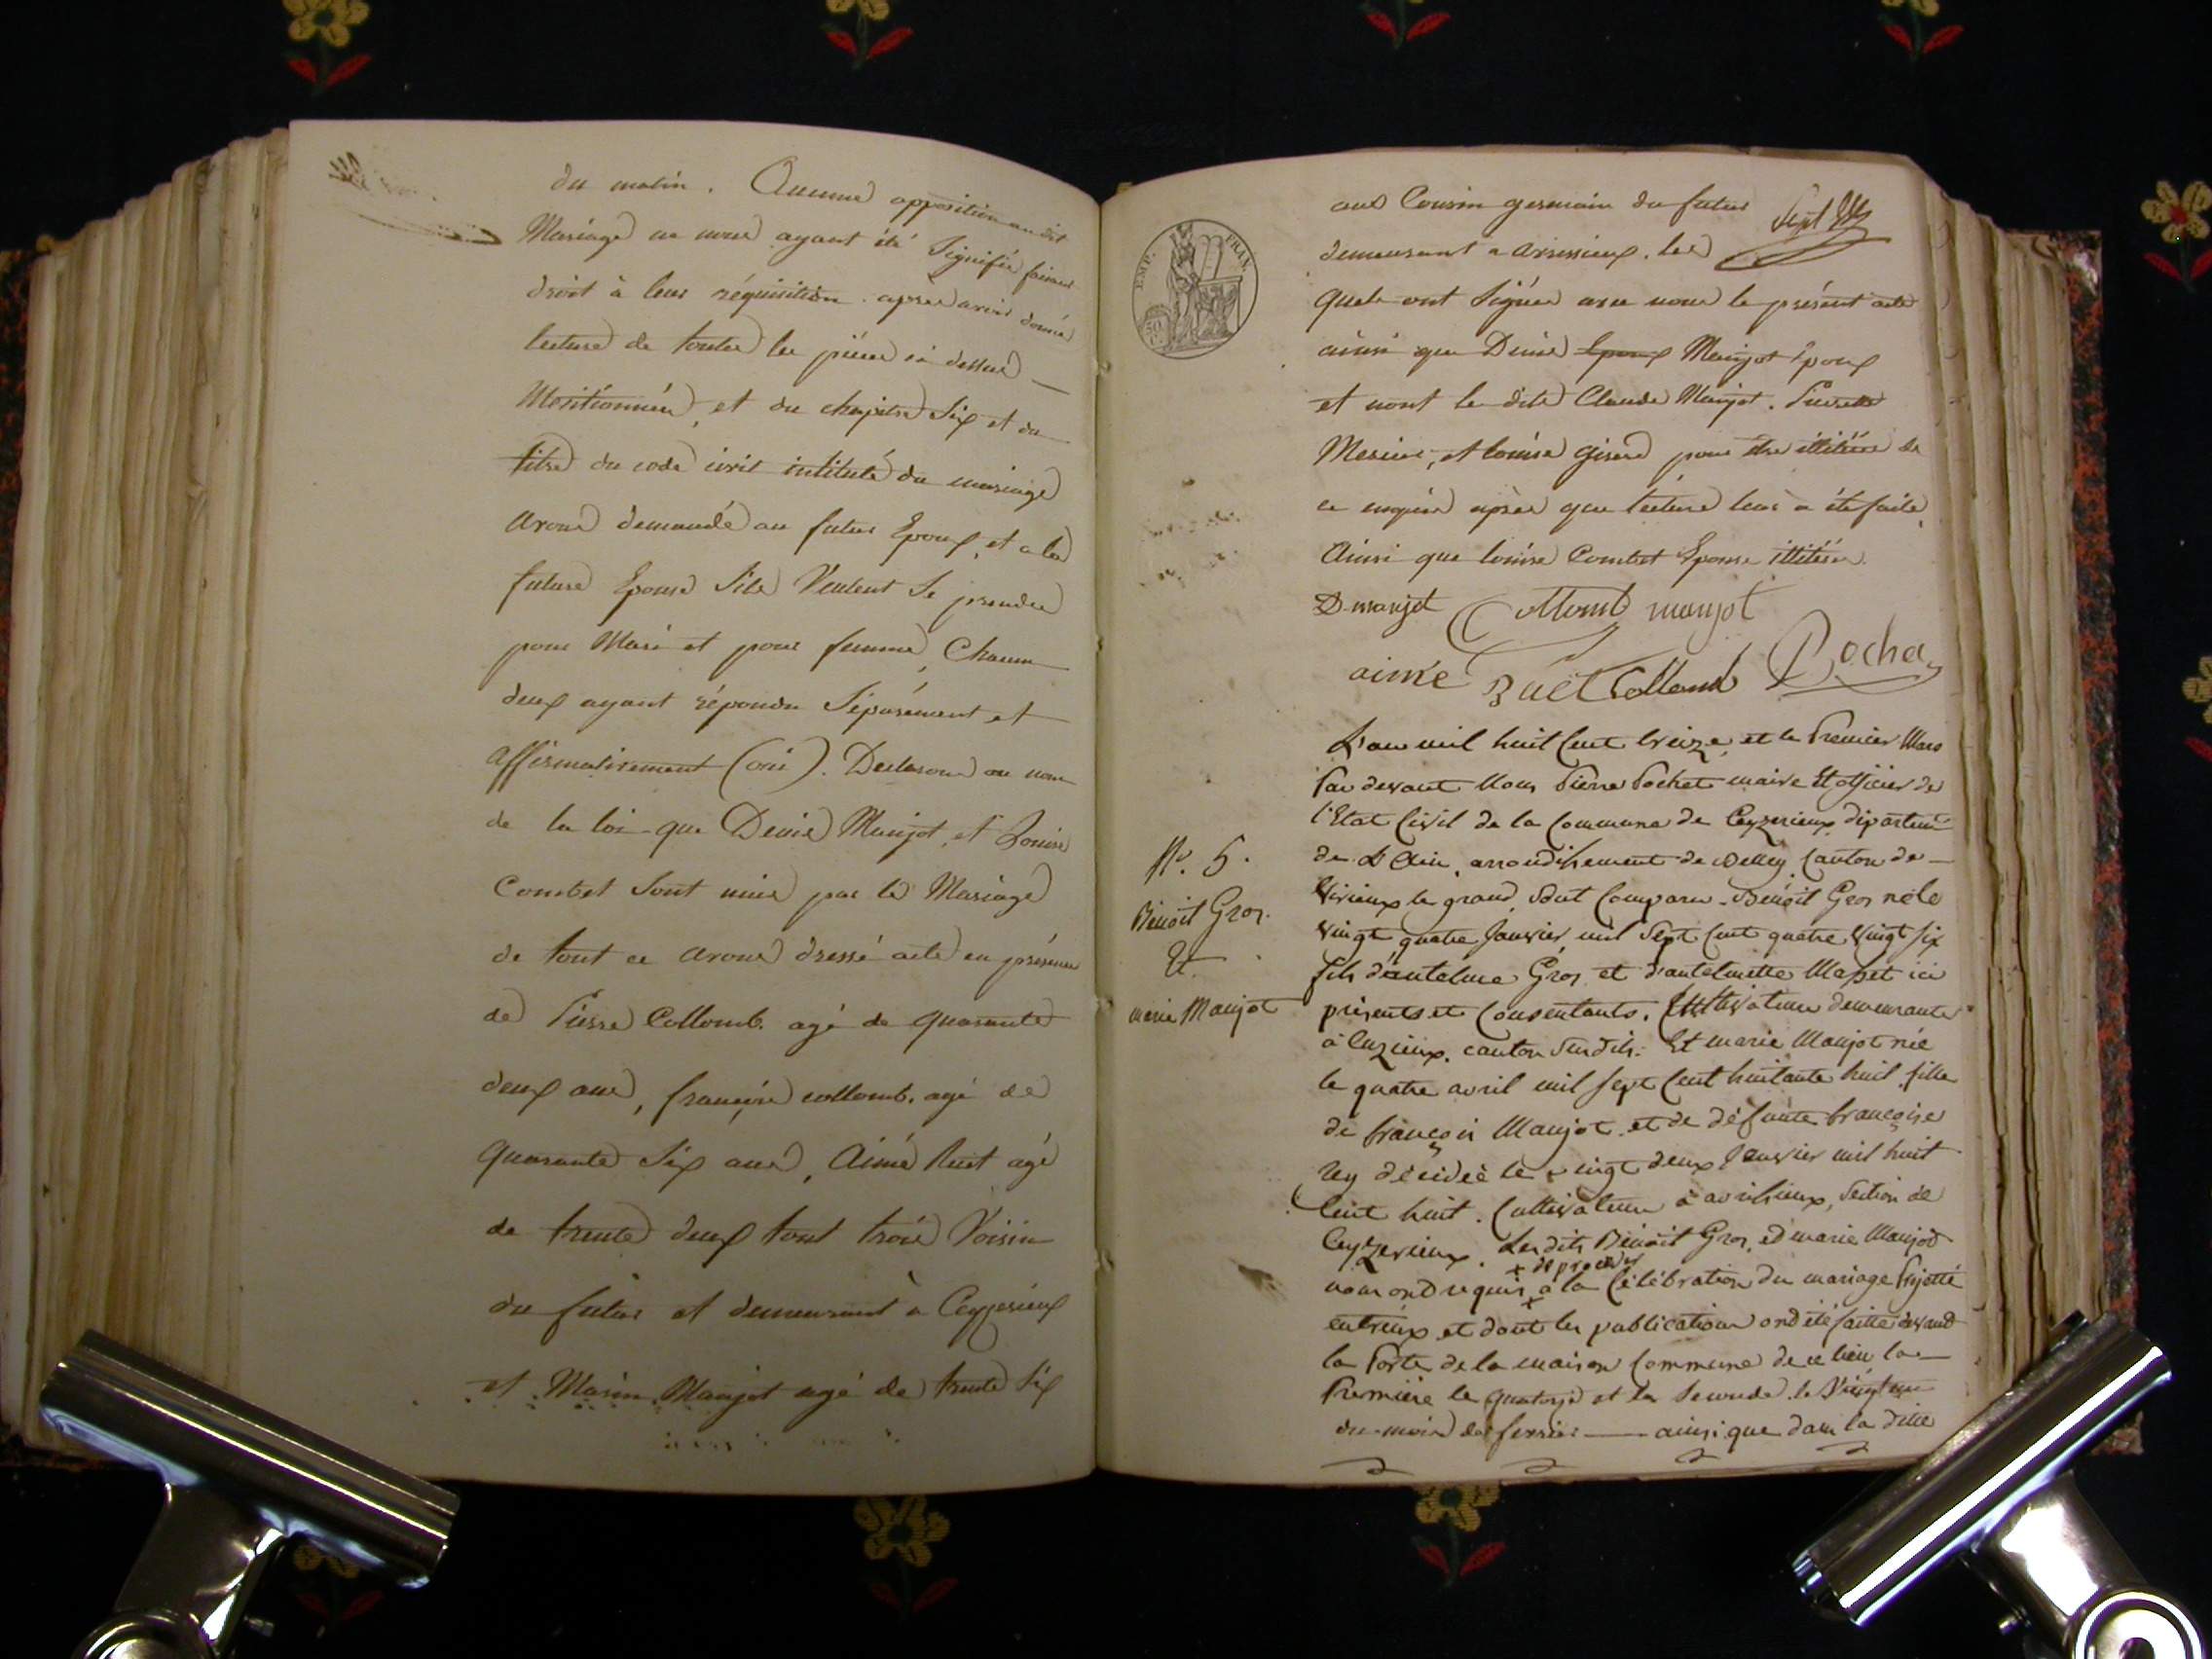 du matin. Aucune opposition audit
Mariage ne nous ayant été Signifiée faisant
droit à leur réquisition. après avoir donné
lecture de toutes les pièces ci dessus
Mentionnées, et du chapitre Six et du
titre du code civil intitulé du mariage
avons demandé au futur Epoux, et a la
future Epouse S'ils Veulent Se prendre
pour Mari et pour femme, Chacun
deux ayant répondu Séparément et
affirmativement (oui). Declarons au nom
de la loi que Denis Manjot, et Louise
Combet Sont unis par le Mariage
de tout ce avons dressé acte en présence
de Pierre Collomb. agé de quarante
deux ans, françois collomb. agé de
quarante Six ans, Aimé Ruet agé
de trente deux tout trois Voisin
du futur et demeurant à Ceyzerieux
et Marin Manjot agé de trente Six
EMP. FRAN.
50 C.
ans Cousin germain du futur Sept
demeurant a avrissieux. les
quels ont Signés avec nous le présent acte
ainsi que Denis Epoux Manjot Epoux
et nont le dits Claude Manjot. Pierrette
Mercier, et louise girerd pour être illitérés de
ce enquis après que lecture leur à été faite,
Ainsi que louise Combet Epouse illitérée.
D. manjot Collomb manjot
aimé Ruet Collomb Pochet
L'an mil huit Cent treize, et le Premier Mars
Par devant Nous Pierre Pochet maire Et officier de
l'Etat Civil de la Commune de Ceyzerieux, départem
de L'Ain, arrondissement de Belley, Canton de
Virieux le grand, Sont Comparu. Benoit Gros né le
vingt quatre Janvier, mil Sept Cent quatre Vingt Six
fils d'antelme Gros et d'antelmette Masset ici
présents et Consentants. Cultivateurs demeurants
à Cuzieux. canton Susdits. Et marie Manjot née
le quatre avril mil Sept Cent huitante huit, fille
de françois Manjot et de défunte françoise
Rey décédée le vingt deux Janvier mil huit
Cent huit. Cultivateur à avrissieux, Section de
Ceyzerieux. Lesdits Benoit Gros, et marie Manjot
+ de proceder
nous ont requis + a la Célébration du mariage Projetté
entr'eux et dont les publications ont été faitte devant
la Porte de la maison Commune de ce lieu, la
Première le quatorze et la Seconde le Vingt un
du mois de fevrier ainsi que dans la ditte
N.° 5.
Benoit Gros.
Et
marie Manjot